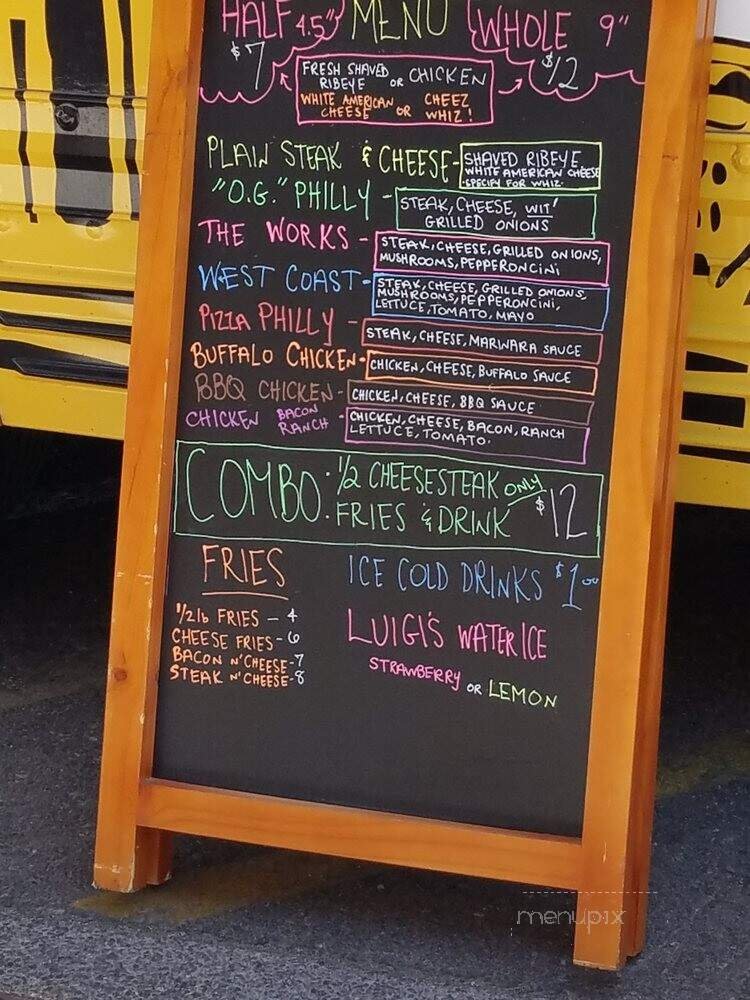 HALF 4.5" MENU WHOLE 9"
$7 $12
FRESH SHAVED RIBEYE OR CHICKEN
WHITE AMERICAN CHEESE OR CHEEZ WHIZ!
PLAIN STEAK & CHEESE - SHAVED RIBEYE
WHITE AMERICAN CHEESE
-SPECIFY FOR WHIZ-
"O.G." PHILLY - STEAK, CHEESE, WIT!
GRILLED ONIONS
THE WORKS - STEAK, CHEESE, GRILLED ONIONS,
MUSHROOMS, PEPPERONCINI
WEST COAST - STEAK, CHEESE, GRILLED ONIONS,
MUSHROOMS, PEPPERONCINI,
LETTUCE, TOMATO, MAYO
PIZZA PHILLY - STEAK, CHEESE, MARINARA SAUCE
BUFFALO CHICKEN - CHICKEN, CHEESE, BUFFALO SAUCE
BBQ CHICKEN - CHICKEN, CHEESE, BBQ SAUCE
CHICKEN BACON RANCH - CHICKEN, CHEESE, BACON, RANCH
LETTUCE, TOMATO.
COMBO: 1/2 CHEESESTEAK ONLY
FRIES & DRINK $12
FRIES
ICE COLD DRINKS $1.00
1/2 lb FRIES - 4
CHEESE FRIES - 6
BACON N' CHEESE - 7
STEAK N' CHEESE - 8
LUIGI'S WATER ICE
STRAWBERRY OR LEMON
menupix